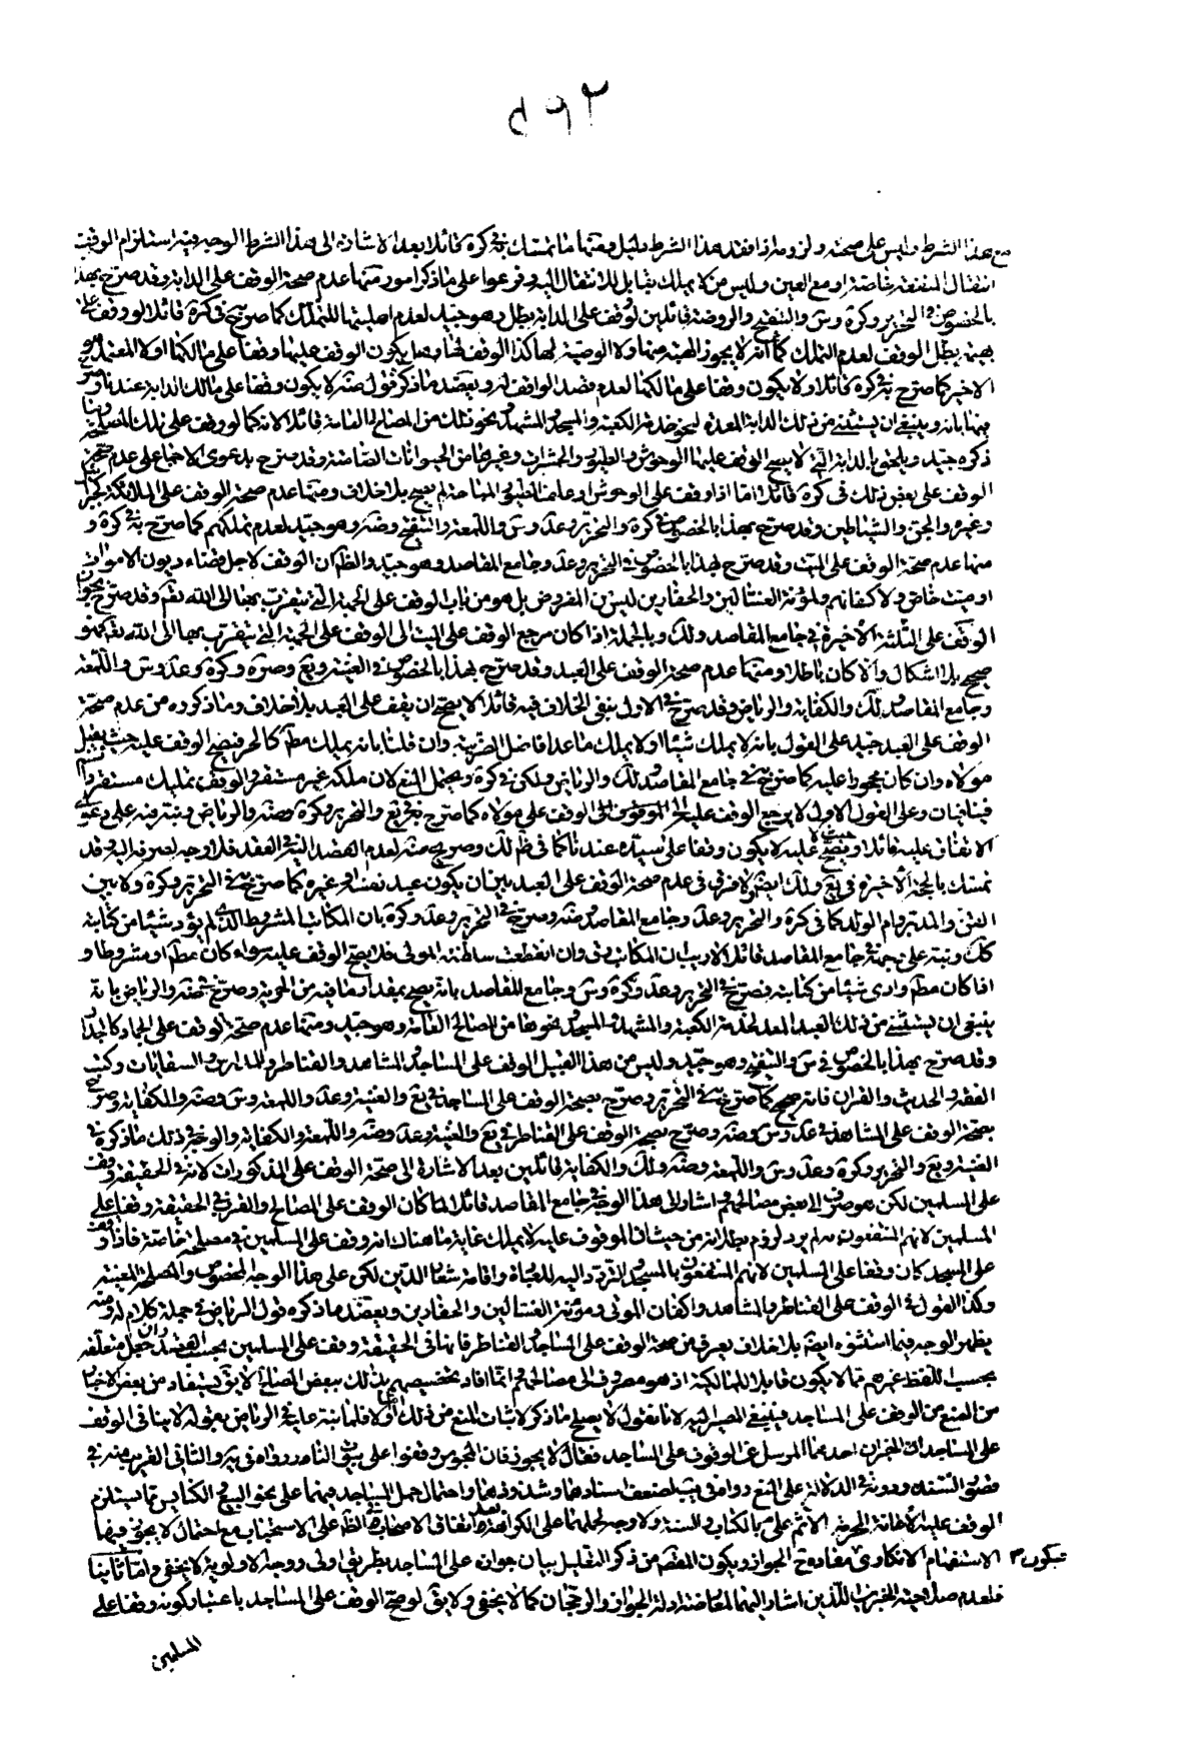 ٥٩٢
مع هذا الشرط وليس على صحته ولزومه اذا فقد هذا الشرط دليل ومنها ما تمسك به في كرة قائلا بعد الاشارة الى هذا الشرط الوجه فيه استلزام الوقف
انتقال المنفعة خاصة او مع العين وليس من لا يملك بقابل للانتقال اليه وفرعوا على ما ذكر امور منها عدم صحة الوقف على الدابة وقد صرح بهذا
بالخصوص في التحرير وكرة وس والتنقيح والروضة قائلين لو وقف على الدابة بطل وهو جيد لعدم اهليتها للتملك كما صرح به في كرة قائلا لو وقف على
بهيمة بطل الوقف لعدم التملك كما انه لا يجوز الهبة منها ولا الوصية لها كذا الوقف لها وهل يكون الوقف عليها وقفا على مالكها او لا المعتمد هو
الاخير كما صرح به في كرة قائلا ولا يكون وقفا على مالكها لعدم قصد الواقف له ويعضد ما ذكر قول ضه لا يكون وقفا على مالك الدابة عندنا وصرح
فيها بانه وينبغي ان يستثنى من ذلك الدابة المعدة لنحو خدمة الكعبة والمسجد والمشهد ونحو ذلك من المصالح العامة قائلا لانه كما لو وقف على تلك المصلحة وما
ذكره جيد ويلحق بالدابة التي لا يصح الوقف عليها الوحوش والطيور والحشرات وغيرها من الحيوانات الصامتة وقد صرح بدعوى الاجماع على عدم صحة
الوقف على بعض ذلك في كرة قائلا اما اذا وقف على الوحوش او علف الطيور المباحة لم يصح بلا خلاف ومنها عدم صحة الوقف على الملائكة كجبرئيل
وغيره والجن والشياطين وقد صرح بهذا بالخصوص في كرة والتحرير وعد وس واللمعة والتنقيح وضه وهو جيد لعدم تملكهم كما صرح به في كرة و
منها عدم صحة الوقف على الميت وقد صرح بهذا بالخصوص في التحرير وعد وجامع المقاصد وهو جيد والظ ان الوقف لاجل قضاء ديون الاموات
او ميت خاص ولاكفانهم ولمؤنة الغسالين والحفارين ليس من المفروض بل هو من باب الوقف على الجهة التي يتقرب بها الى الله تعم وقد صرح بجواز
الوقف على الثلثة الاخيرة في جامع المقاصد ولك وبالجملة اذا كان مرجع الوقف على الميت الى الوقف على الجهة التي يتقرب بها الى الله تعم فهو
صحيح بلا اشكال والا كان باطلا ومنها عدم صحة الوقف على العبد وقد صرح بهذا بالخصوص في الغنية ويع وصره وكرة وعد وس واللمعة
وجامع المقاصد ولك والكفاية والرياض وقد صرح في الاول بنفي الخلاف فيه قائلا لا يصح ان يقف على العبد بلا خلاف وما ذكروه من عدم صحة
الوقف على العبد جيد على القول بانه لا يملك شيئا او لا يملك ما عدا فاضل الضريبة وان قلنا بانه يملك مطم كالحر فيصح الوقف عليه حيث يقبل
مولاه وان كان محجورا عليه كما صرح به في جامع المقاصد ولك والرياض ولكن في كرة ويحتمل المنع لان ملكه غير مستقر والوقف تمليك مستقر
فيتنافيان وعلى القول الاول لا يرجع الوقف عليه الى الوقف على مولاه كما صرح به في يع والتحرير وكرة وضه والرياض ونبه فيه على دعوى
الاتفاق عليه قائلا وحيث لا يصح عليه لا يكون وقفا على سيده عندنا كما في ظ لك وصريح ضه لعدم القصد اليه في العقد فلا وجه لصرفه اليه وقد
تمسك بالحجة الاخيرة في يع ولك ايضا ولا فرق في عدم صحة الوقف على العبد بين ان يكون عبد نفسه او غيره كما صرح به في التحرير وكرة ولا بين
القن والمدبر وام الولد كما في كرة والتحرير وعد وجامع المقاصد وضه وصرح في التحرير وعد وكرة بان المكاتب المشروط الذي لم يؤد شيئا من كتابته
كك ونبه على وجهه في جامع المقاصد قائلا لا ريب ان المكاتب رق وان انقطعت سلطنة المولى فلا يصح الوقف عليه سواء كان مطم او مشروطا و
اذا كان مطم وادى شيئا من كتابته فصرح في التحرير وعد وكرة وس وجامع المقاصد بانه يصح بمقدار ما فيه من الحرية وصرح في ضه والرياض بانه
ينبغي ان يستثنى من ذلك العبد المعد لخدمة الكعبة والمشهد والمسجد ونحوها من المصالح العامة وهو جيد ومنها عدم صحة الوقف على الجماد كالجدار
وقد صرح بهذا بالخصوص في س والتنقيح وهو جيد وليس من هذا القبيل الوقف على المساجد والمشاهد والقناطر والمدارس والسقايات وكتب
الفقه والحديث والقران فانه صحيح كما صرح به في التحرير وصرح بصحة الوقف على المساجد في يع والغنية وعد واللمعة وس وضه والكفاية وصرح
بصحة الوقف على المشاهد في عد وس وضه وصرح بصحة الوقف على القناطر في يع والغنية وعد وضه واللمعة والكفاية والوجه في ذلك ما ذكره في
الغنية ويع والتحرير وكرة وعد وس واللمعة وضه ولك والكفاية قائلين بعد الاشارة الى صحة الوقف على المذكورات لانه في الحقيقة وقف
على المسلمين لكن هو مصروف الى بعض مصالحهم واشار الى هذا الوجه في جامع المقاصد قائلا لما كان الوقف على المصالح والقرب في الحقيقة وقفا على
المسلمين لانهم المنتفعون به لم يرد لزوم بطلانه من حيث ان الموقوف عليه لا يملك غاية ما هناك انه وقف على المسلمين في مصلحة خاصة فاذا وقف
على المسجد كان وقفا على المسلمين لانهم المنتفعون بالمسجد للتردد اليه للعبادة واقامة شعائر الدين لكن على هذا الوجه المخصوص والمصلحة المعينة
وكذا القول في الوقف على القناطر والمشاهد واكفان الموتى ومؤنة الغسالين والحفارين ويعضد ما ذكره قول الرياض في جملة كلام له ومنه
يظهر الوجه فيما استثنوه ايضا بلا خلاف يعرف من صحة الوقف على المساجد والقناطر فانها في الحقيقة وقف على المسلمين بحسب القصد وان جعل متعلقه
بحسب اللفظ غيرهم مما لا يكون قابلا للمالكية اذ هو مصروف الى مصالحهم وانما افاد تخصيصهم بذلك بعض المصالح لا يق يستفاد من بعض الاخبار
من المنع من الوقف على المساجد فينبغي المصير اليه لانا نقول لا يصلح ما ذكر لاثبات المنع من ذلك اما اولا فلما نبه عليه في الرياض بقوله لا ينافي الوقف
على المساجد ان الخبران احدهما المرسل عن الوقوف على المساجد فقال لا يجوز فان المجوس وقفوا على بيوت النار ورواه في يب والثاني القريب منه في
قصور السند ودونه في الدلالة على المنع رواه في يب لضعف اسنادهما وشذوذهما واحتمال حمل المساجد فيهما على نحو البيع والكنايس مما يستلزم
الوقف عليه الاعانة المحرمة الاثم على بالكتاب والسنة ولا وجه لحملهما على الكراهة بعد اتفاق الاصحاب في الظ على الاستحباب مع احتمال لا يجوز فيهما
الاستفهام الانكاري مفاده ح الجواز ويكون القصد من ذكر التعليل بيان جوازه على المساجد بطريق اولى ووجه الاولوية لا يخفى واما ثانيا
تبكون ٣
فلعدم صلاحية الخبرين اللذين اشار اليهما لمعارضة ادلة الجواز والرجحان كما لا يخفى ولا يق لو صح الوقف على المساجد باعتبار كونه وقفا على
المسلمين